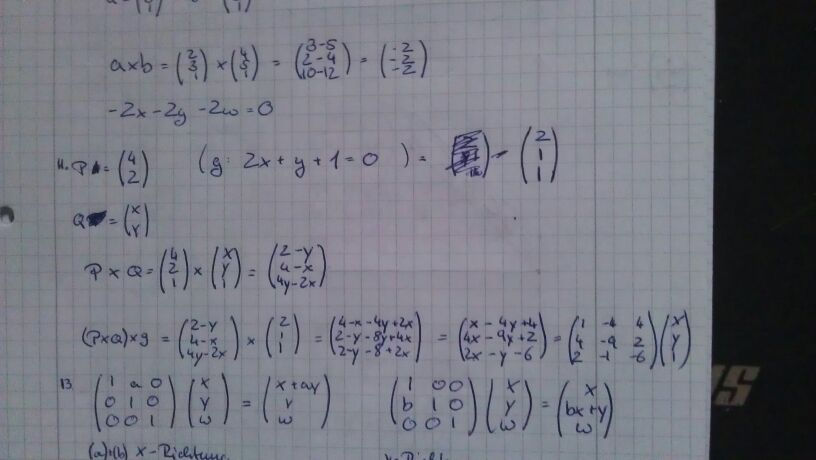 a×b = (2 3 1) × (4 5 1) = (3-5 2-4 10-12) = (-2 -2 -2)
-2x - 2y - 2w = 0
P = (4 2) (g: 2x + y + 1 = 0) = (2 1 1)
Q = (x y)
P × Q = (4 2 1) × (x y 1) = (2-y 4-x 4y-2x)
(P×Q)×g = (2-y 4-x 4y-2x) × (2 1 1) = (4-x-4y+2x 2-y-8y+4x 2-y-8+2x) = (x-4y+4 4x-9y+2 2x-y-6) = (1 -4 4 4 -9 2 2 -1 -6)(x y 1)
13 (1 a 0 0 1 0 0 0 1)(x y w) = (x+ay y w) (1 0 0 b 1 0 0 0 1)(x y w) = (x bx+y w)
(a)+(b) x-Richtung